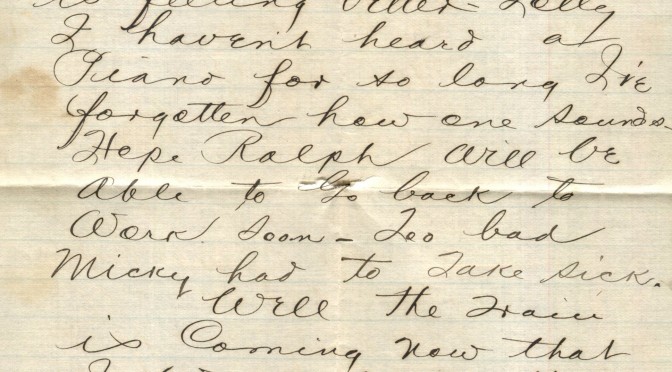 is feeling better - Golly
I havent heard a
Piano for so long I've
forgotten how one sounds.
Hope Ralph will be
Able to Go back to
Work soon - Too bad
Micky had to Take sick.
Well The Train
is Coming now that